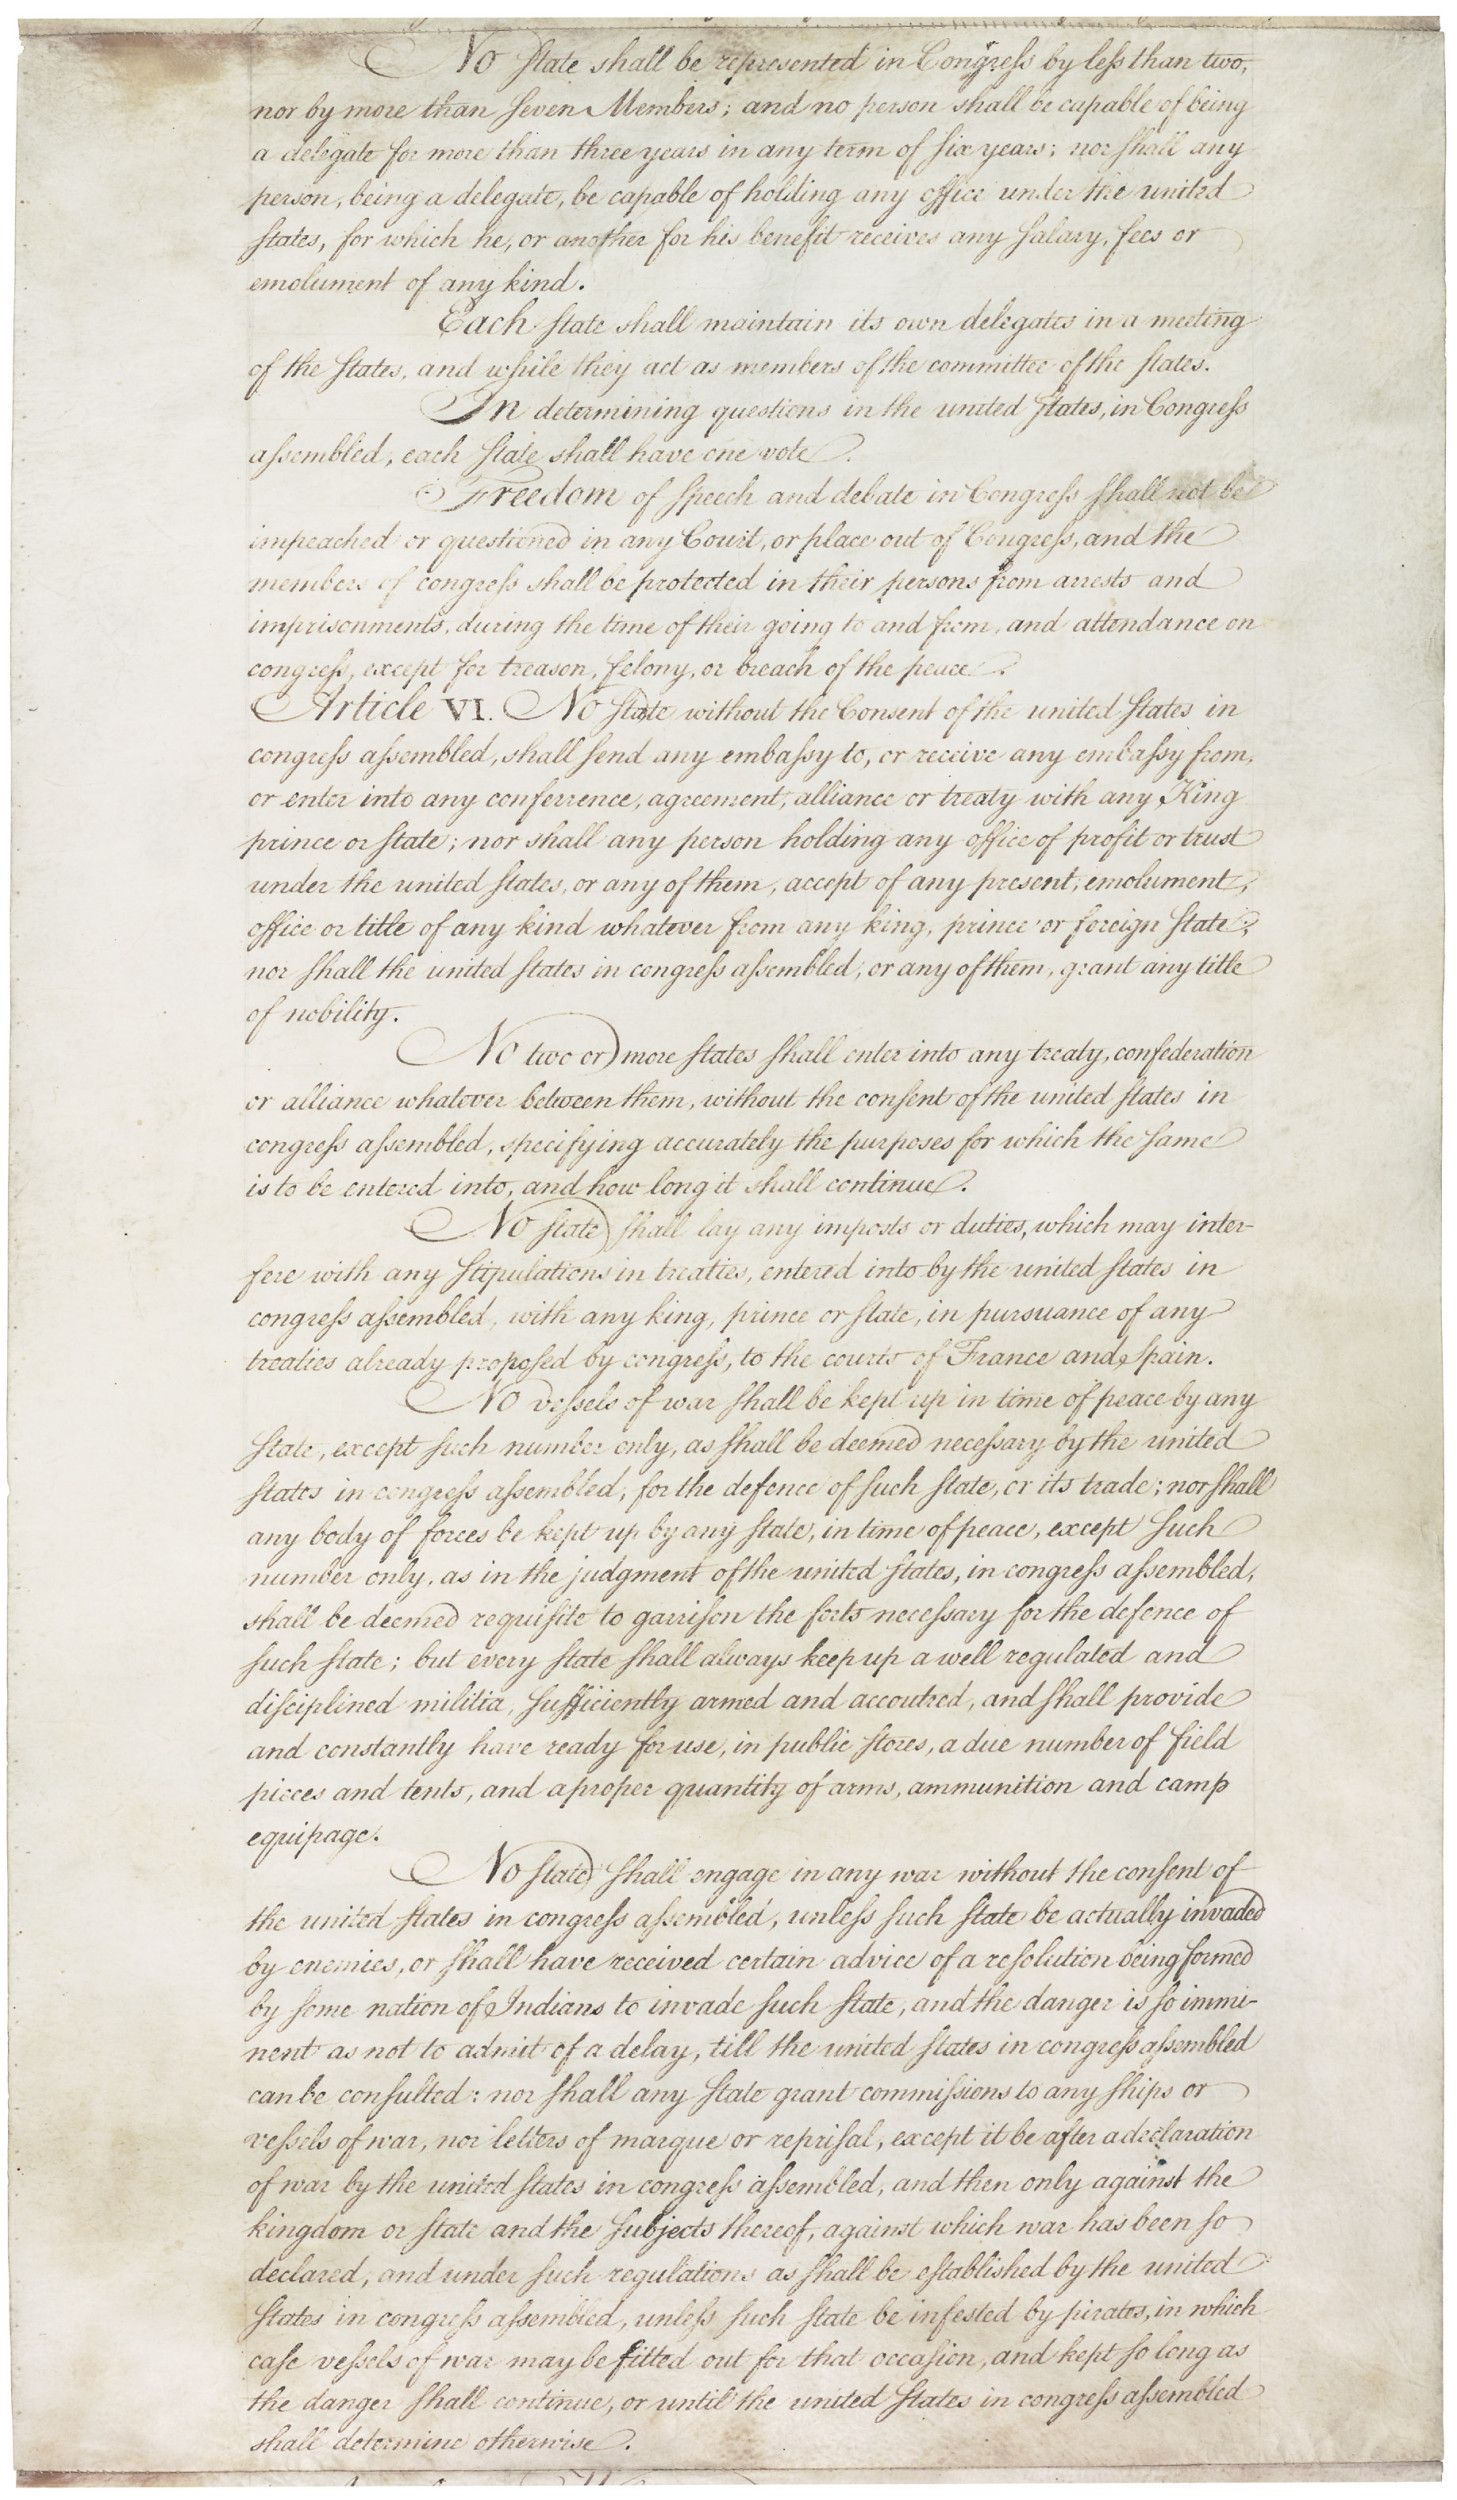 No State shall be represented in Congress by less than two,
nor by more than seven Members; and no person shall be capable of being
a delegate for more than three years in any term of six years; nor shall any
person, being a delegate, be capable of holding any office under the united
states, for which he, or another for his benefit receives any salary, fees or
emolument of any kind.
Each state shall maintain its own delegates in a meeting
of the states, and while they act as members of the committee of the states.
In determining questions in the united states, in Congress
assembled, each state shall have one vote.
Freedom of speech and debate in Congress shall not be
impeached or questioned in any Court, or place out of Congress, and the
members of congress shall be protected in their persons from arrests and
imprisonments, during the time of their going to and from, and attendance on
congress, except for treason, felony, or breach of the peace.
Article VI. No State without the Consent of the united States in
congress assembled, shall send any embassy to, or receive any embassy from,
or enter into any conferrence, agreement, alliance or treaty with any King
prince or state; nor shall any person holding any office of profit or trust
under the united states, or any of them, accept of any present, emolument,
office or title of any kind whatever from any king, prince or foreign state;
nor shall the united states in congress assembled, or any of them, grant any title
of nobility.
No two or more states shall enter into any treaty, confederation
or alliance whatever between them, without the consent of the united states in
congress assembled, specifying accurately the purposes for which the same
is to be entered into, and how long it shall continue.
No state shall lay any imposts or duties, which may inter-
fere with any stipulations in treaties, entered into by the united states in
congress assembled, with any king, prince or state, in pursuance of any
treaties already proposed by congress, to the courts of France and Spain.
No vessels of war shall be kept up in time of peace by any
state, except such number only, as shall be deemed necessary by the united
states in congress assembled, for the defence of such state, or its trade; nor shall
any body of forces be kept up by any state, in time of peace, except such
number only, as in the judgment of the united states, in congress assembled,
shall be deemed requisite to garrison the forts necessary for the defence of
such state; but every state shall always keep up a well regulated and
disciplined militia, sufficiently armed and accoutred, and shall provide
and constantly have ready for use, in public stores, a due number of field
pieces and tents, and a proper quantity of arms, ammunition and camp
equipage.
No state shall engage in any war without the consent of
the united states in congress assembled, unless such state be actually invaded
by enemies, or shall have received certain advice of a resolution being formed
by some nation of Indians to invade such state, and the danger is so immi-
nent as not to admit of a delay, till the united states in congress assembled
can be consulted: nor shall any state grant commissions to any ships or
vessels of war, nor letters of marque or reprisal, except it be after a declaration
of war by the united states in congress assembled, and then only against the
kingdom or state and the subjects thereof, against which war has been so
declared, and under such regulations as shall be established by the united
states in congress assembled, unless such state be infested by pirates, in which
case vessels of war may be fitted out for that occasion, and kept so long as
the danger shall continue, or until the united states in congress assembled
shall determine otherwise.